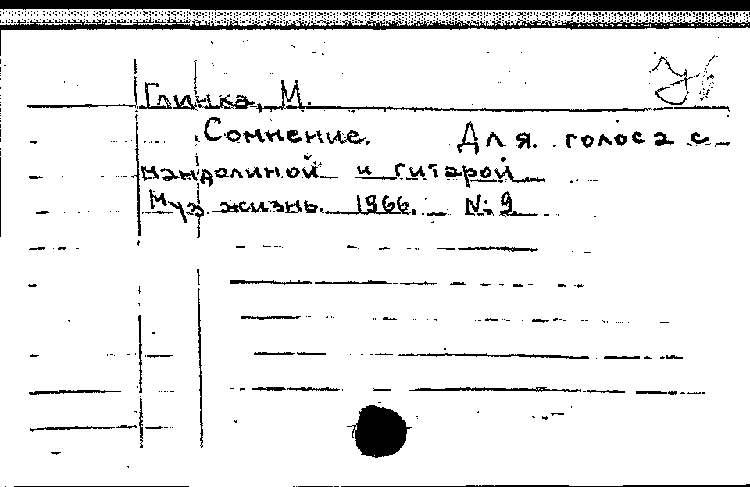 Глинка, М.
Сомнение. Для голоса с
мандолиной и гитарой
Муз. жизнь. 1966. № 9